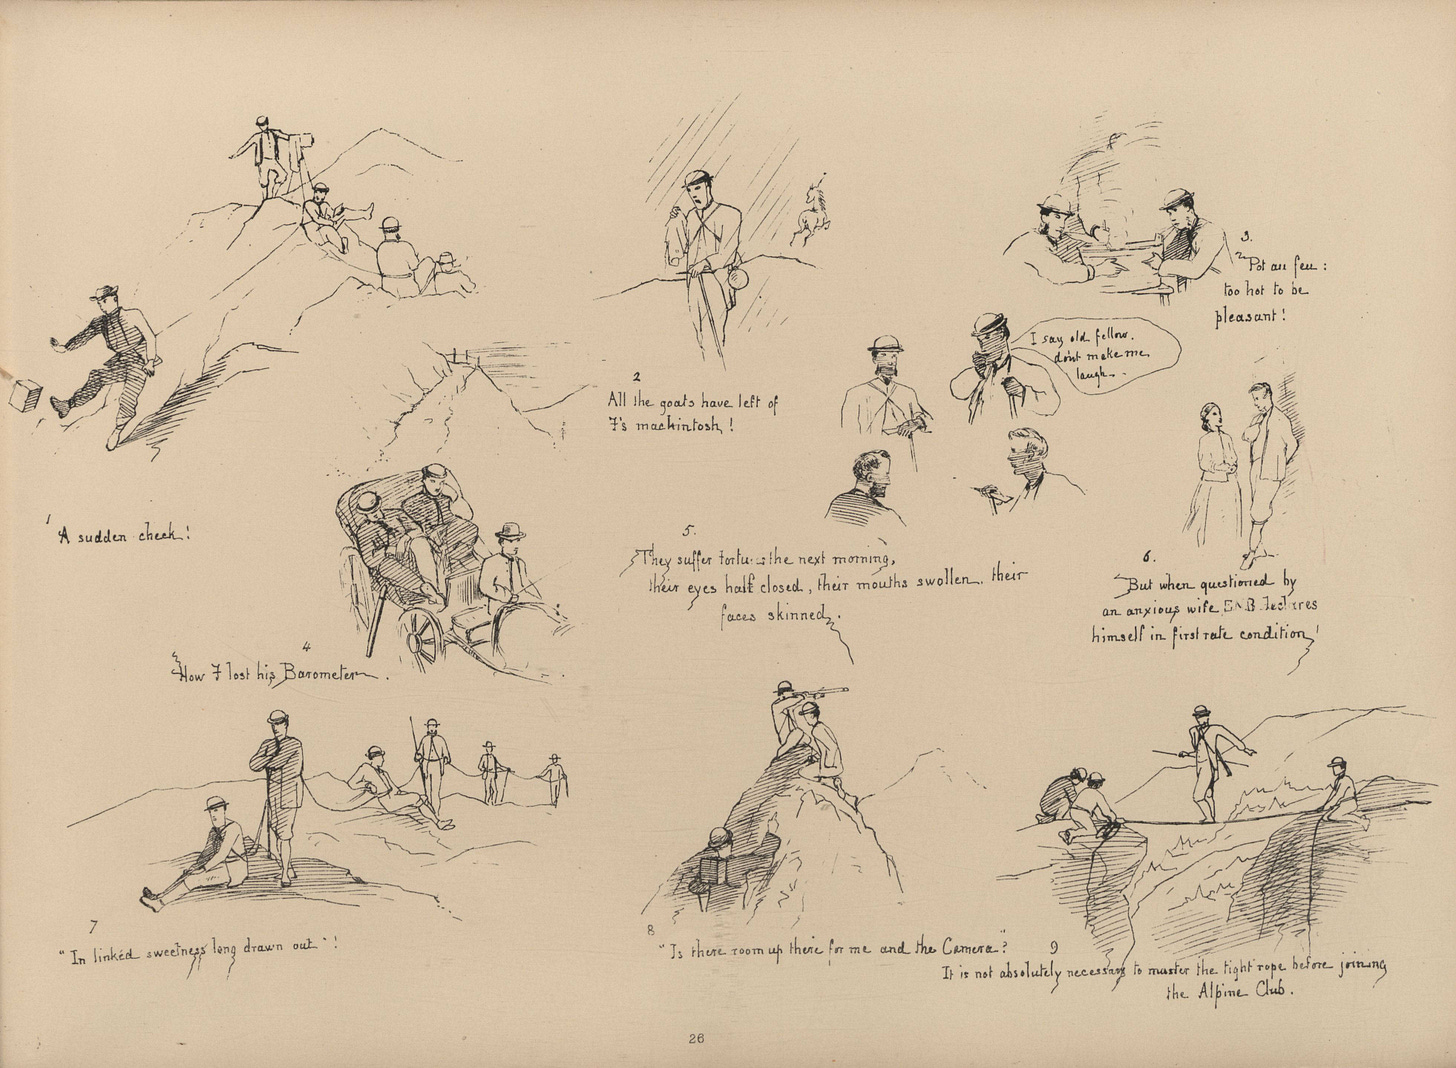 1
"A sudden check!
2
All the goats have left of
F's mackintosh!
3.
"Pot au feu:
too hot to be
pleasant!
I say old fellow.
dont make me
laugh.
4
How F lost his Barometer.
5.
They suffer the next morning,
their eyes half closed, their mouths swollen. their
faces skinned.
6.
But when questioned by
an anxious wife
himself in first rate condition!
7
"In linkéd sweetness long drawn out"!
8
"Is there room up there for me and the Camera"?
9
It is not absolutely necessary to master the tight rope before joining
the Alpine Club.
26